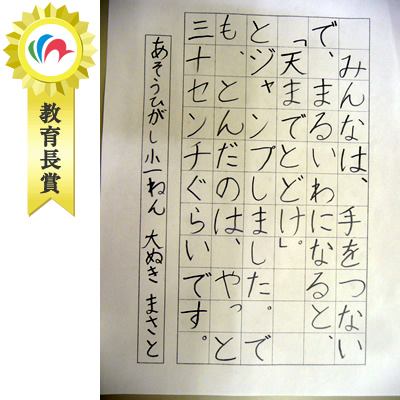 みんなは、手をつない
で、まるいわになると、
「天までとどけ」。
とジャンプしました。で
も、とんだのは、やっと
三ナセンチぐらいです。
あそうひがし小一ねん 大ぬき まさと
教育長賞